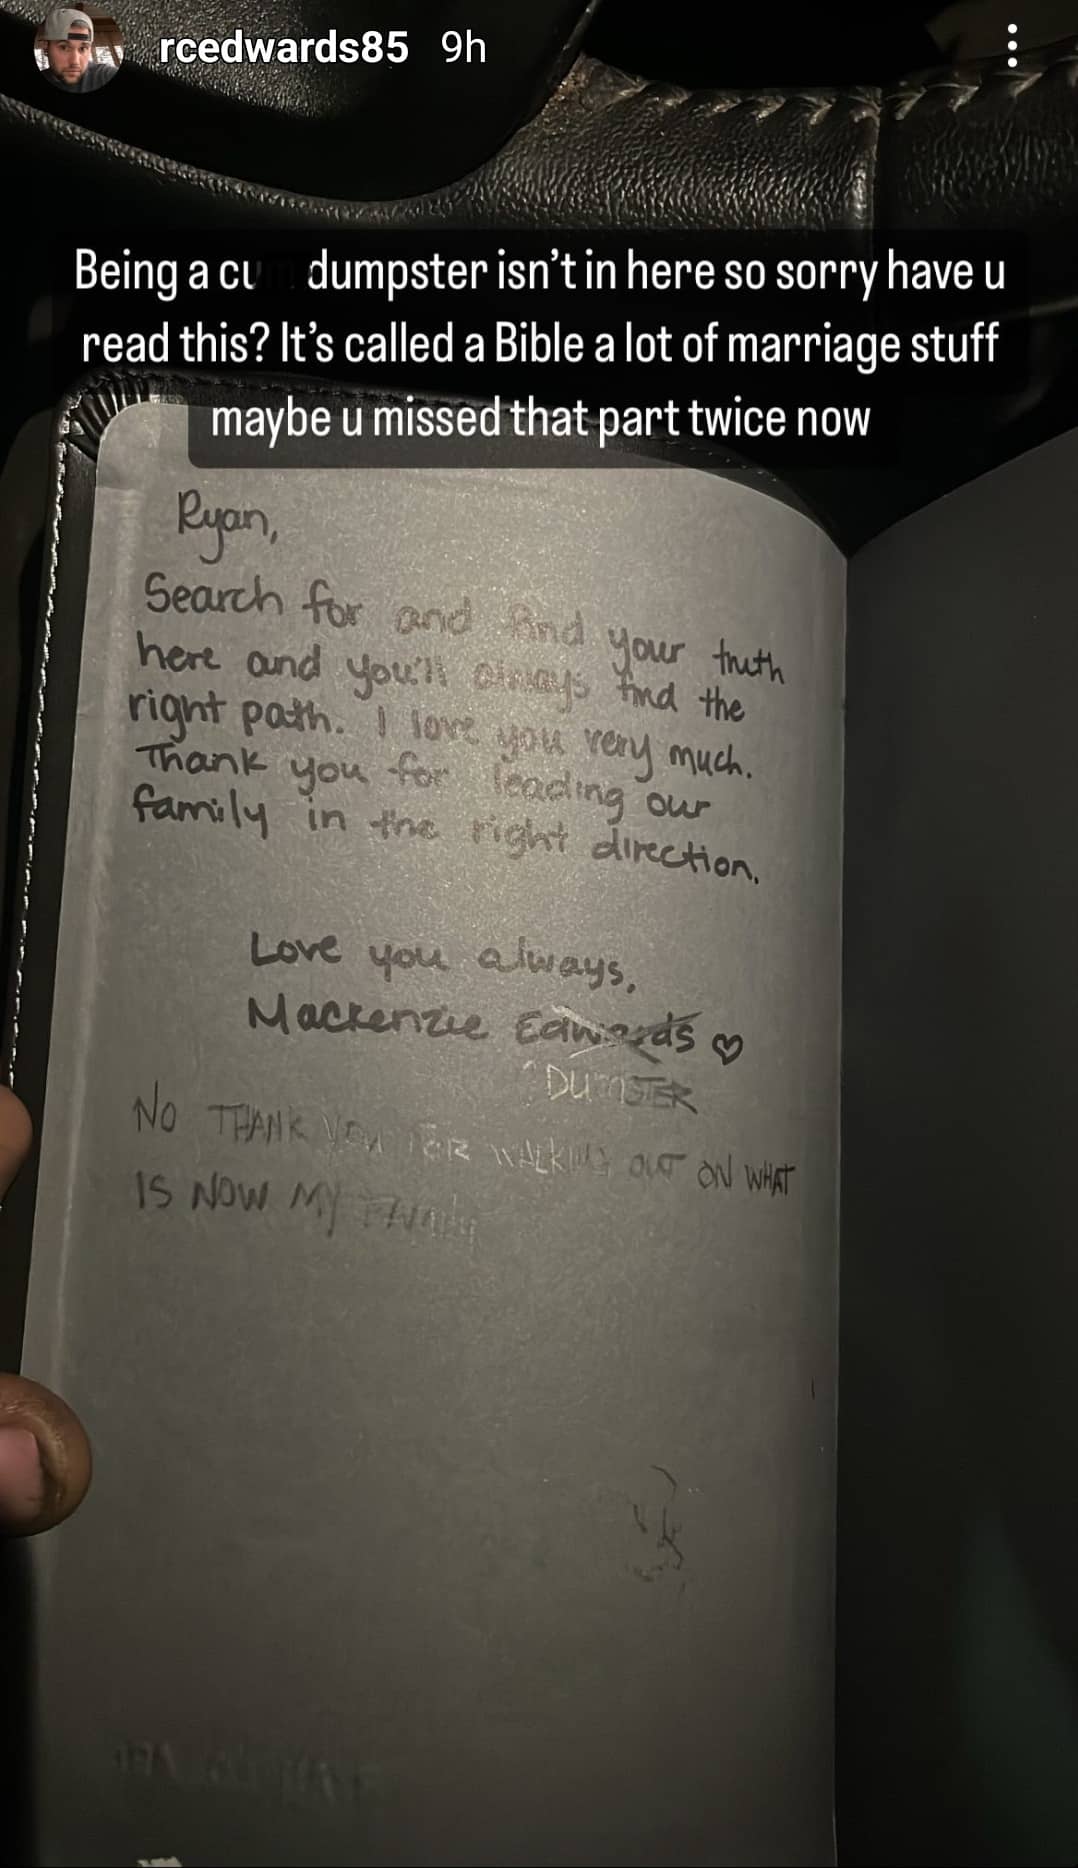 rcedwards85 9h
Being a cu dumpster isn't in here so sorry have u
read this? It's called a Bible a lot of marriage stuff
maybe u missed that part twice now
Ryan,
Search for and find your truth
here and you'll always find the
right path. I love you very much.
Thank you for leading our
family in the right direction.
Love you always,
Mackenzie Edwards ♡
DUMSTER
NO THANK YOU FOR WALKING OUT ON WHAT
IS NOW MY FAMILY